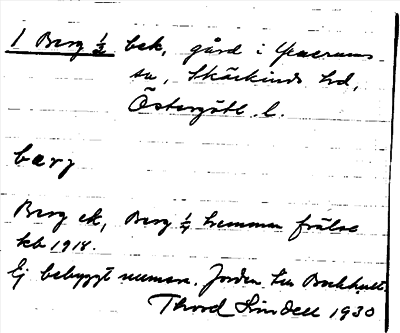 1 Berg ½ bek, gård i Yxnerums
sn, Skärkinds hd,
Östergötl. l.
bærj
Berg ek, Berg ¼ hemman frälse
kb 1918.
Ej bebyggt numera. Jorden tu Bockhult
Thord Lindell 1930